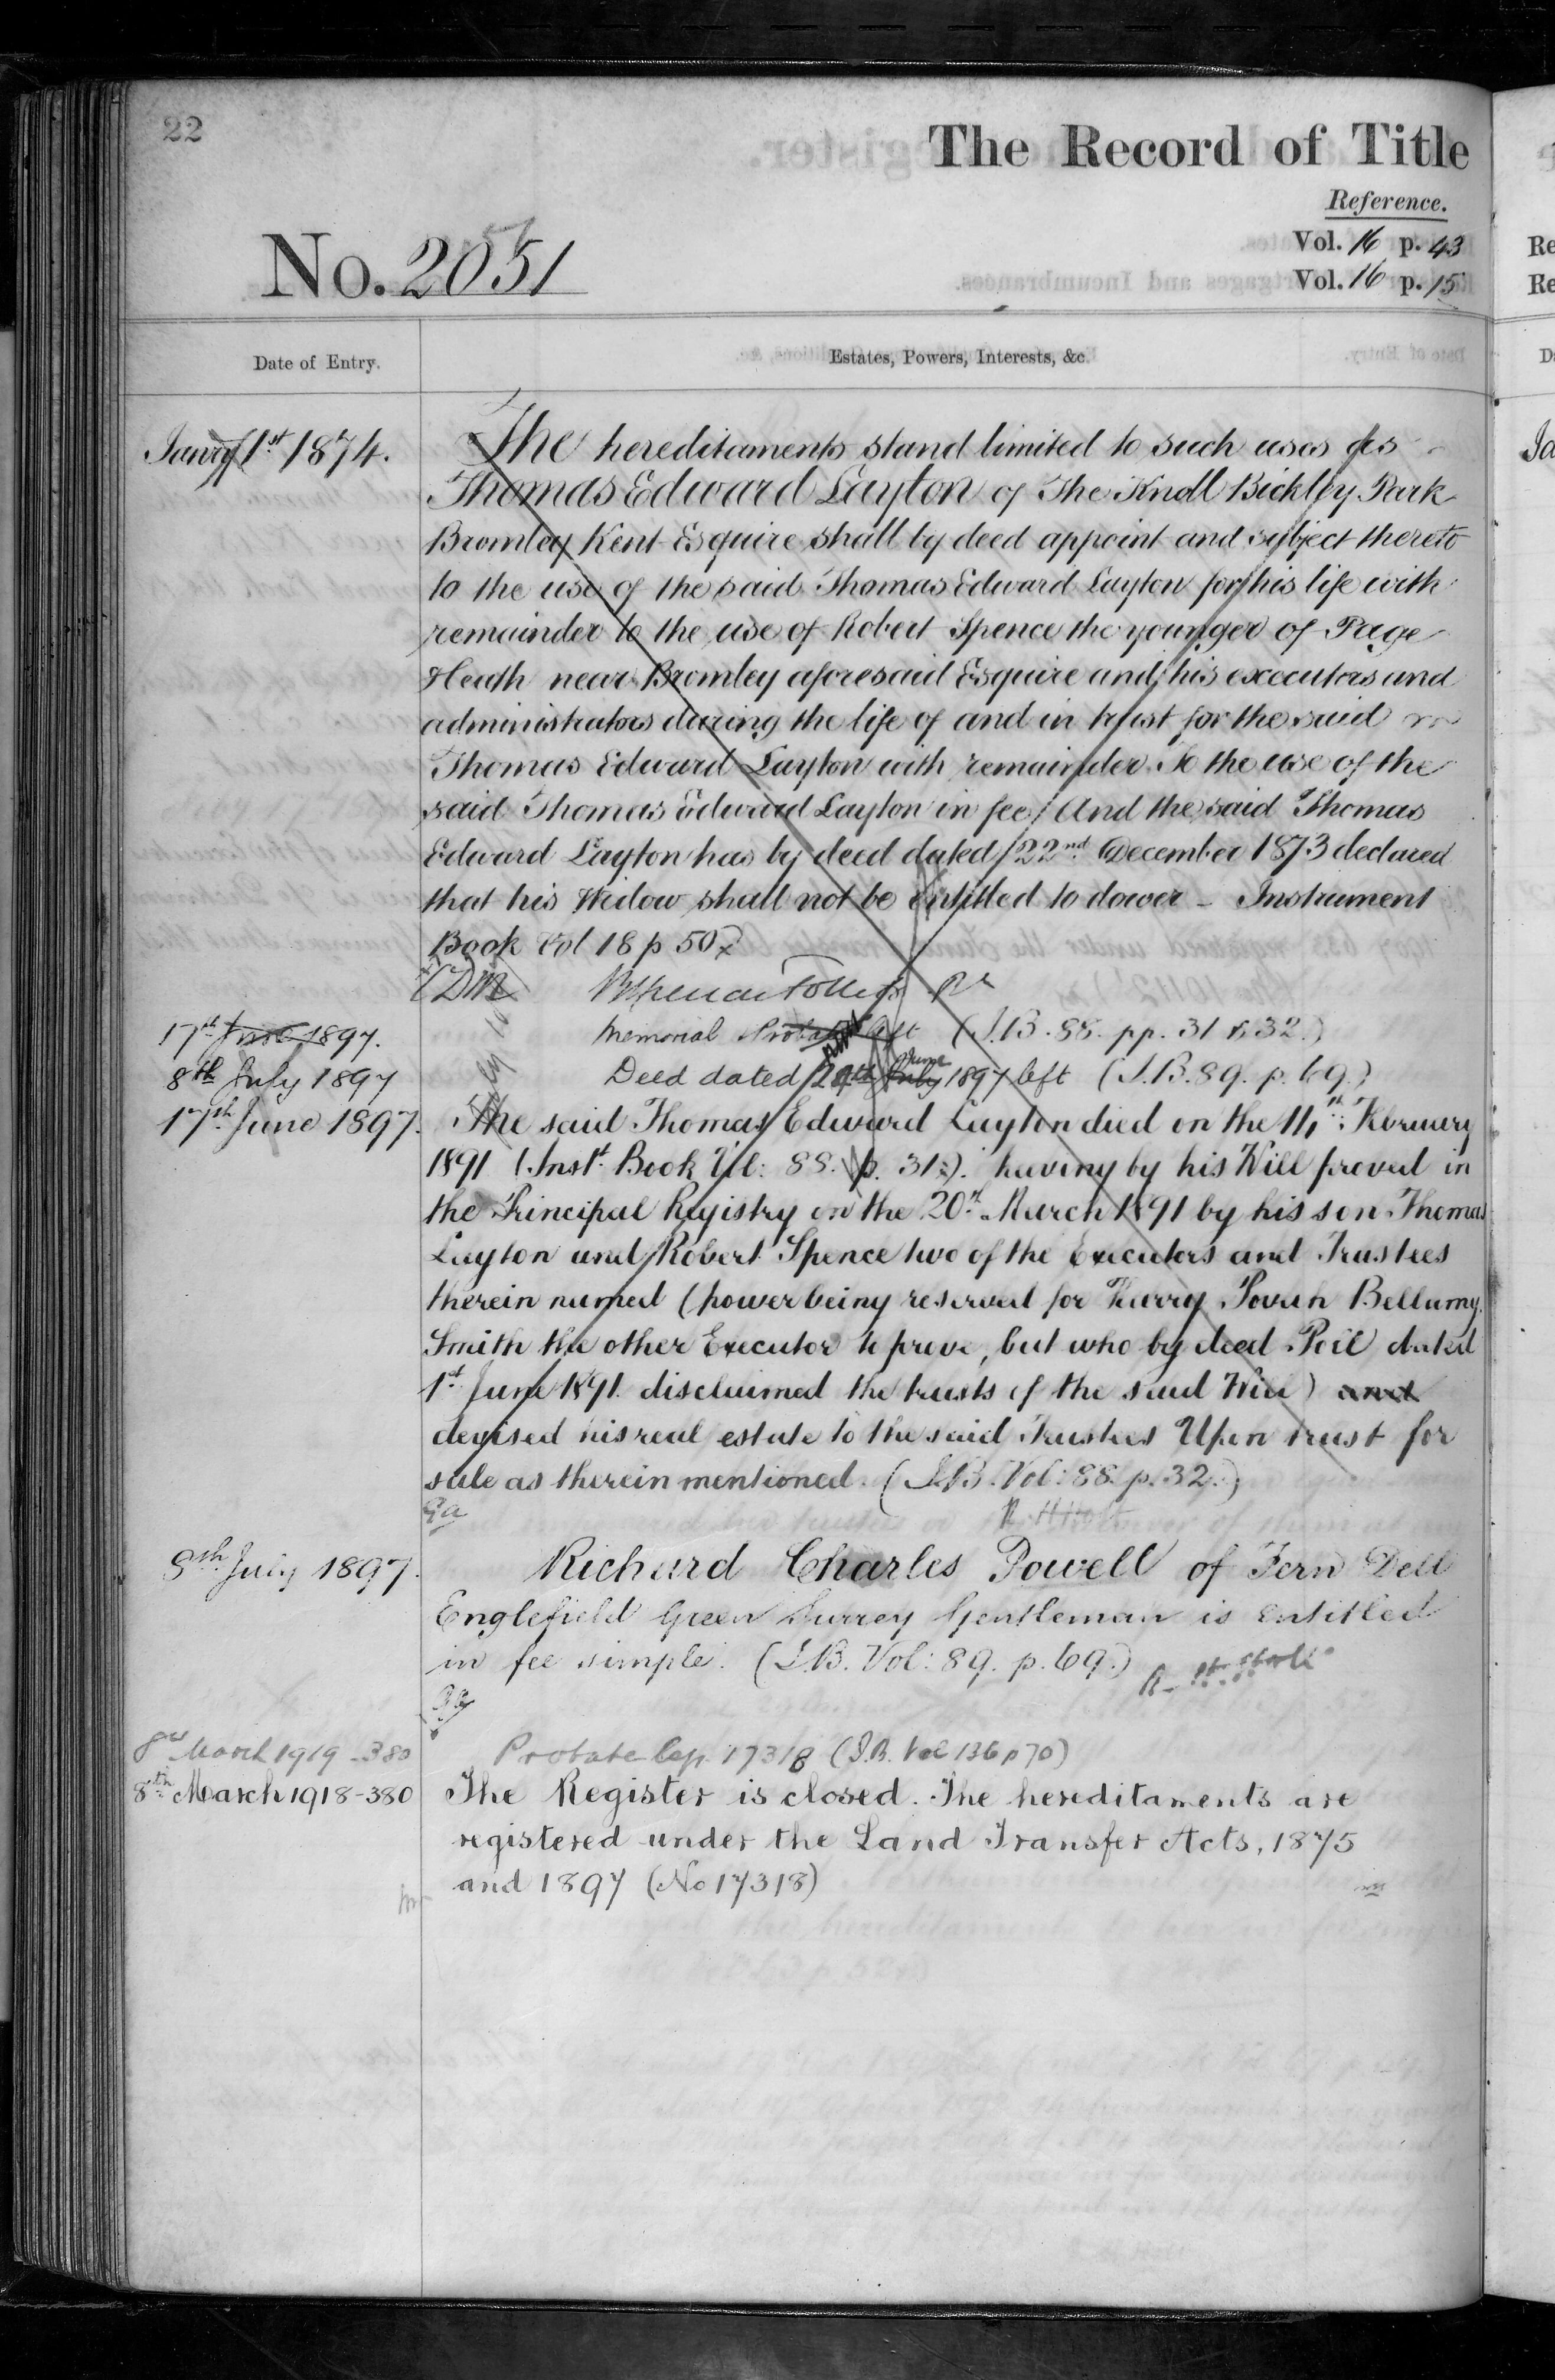 22
The Record of Title
Reference.
No. 2051
Vol. 16 p. 43
Vol. 16 p. 15
Date of Entry.
Estates, Powers, Interests, &c.
Jany 1st 1874.
The hereditaments stand limited to such uses as
Thomas Edward Layton of The Knoll Bickley Park
Bromley Kent Esquire shall by deed appoint and subject thereto
to the use of the said Thomas Edward Layton for his life with
remainder to the use of Robert Spence the younger of Page
Heath near Bromley aforesaid Esquire and his executors and
administrators during the life of and in trust for the said
Thomas Edward Layton with remainder To the use of the
said Thomas Edward Layton in fee And the said Thomas
Edward Layton has by deed dated 22nd December 1873 declared
that his Widow shall not be entitled to dower - Instrument
Book Vol 18 p 50
17th June 1897.
Memorial Probate left (I.B. 88. pp. 31 & 32.)
8th July 1897
Deed dated 29th July June 1897 left (I.B. 89. p. 69.)
17th June 1897.
The said Thomas Edward Layton died on the 11th February
1891 (Inst. Book Vol: 88. p. 31.) having by his Will proved in
the Principal Registry on the 20th March 1891 by his son Thomas
Layton and Robert Spence two of the Executors and Trustees
therein named (power being reserved for Harry Povah Bellamy
Smith the other Executor to prove, but who by deed Poll dated
1st June 1891 disclaimed the trusts of the said Will) and
devised his real estate to the said Trustees Upon trust for
sale as therein mentioned. (I.B. Vol: 88. p. 32.)
8th July 1897.
Richard Charles Powell of Fern Dell
Englefield Green Surrey Gentleman is entitled
in fee simple. (I.B. Vol: 89. p. 69.)
8th March 1919-380
Probate 17318 (I.B. Vol 136 p 70)
8th March 1918-380
The Register is closed. The hereditaments are
registered under the Land Transfer Acts, 1875
and 1897 (No 17318)